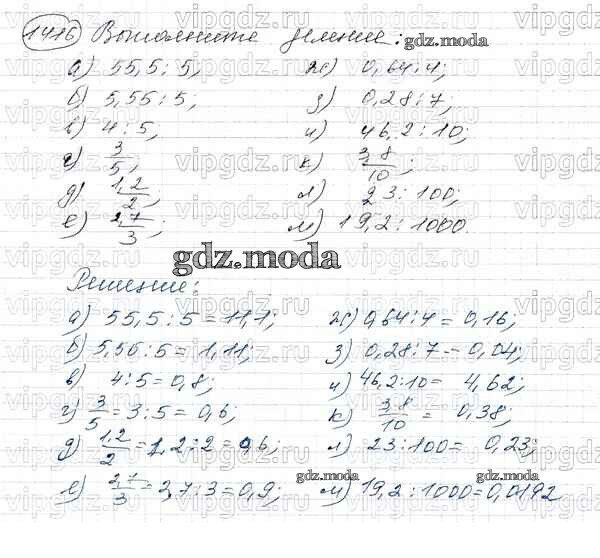 1416 Выполните деление:
а) 55,5:5; ж) 0,64:4;
б) 5,55:5; з) 0,28:7;
в) 4:5; и) 46,2:10;
г) 3/5; к) 3,8/10;
д) 1,2/2; л) 23:100;
е) 2,7/3; м) 19,2:1000.
gdz.moda
Решение:
а) 55,5:5=11,1; ж) 0,64:4=0,16;
б) 5,55:5=1,11; з) 0,28:7=0,04;
в) 4:5=0,8; и) 46,2:10= 4,62;
г) 3/5=3:5=0,6; к) 3,8/10 = 0,38;
д) 1,2/2=1,2:2=0,6; л) 23:100= 0,23;
е) 2,7/3=2,7:3=0,9; м) 19,2:1000=0,0192
gdz.moda
gdz.moda
gdz.moda
vipgdz.ru